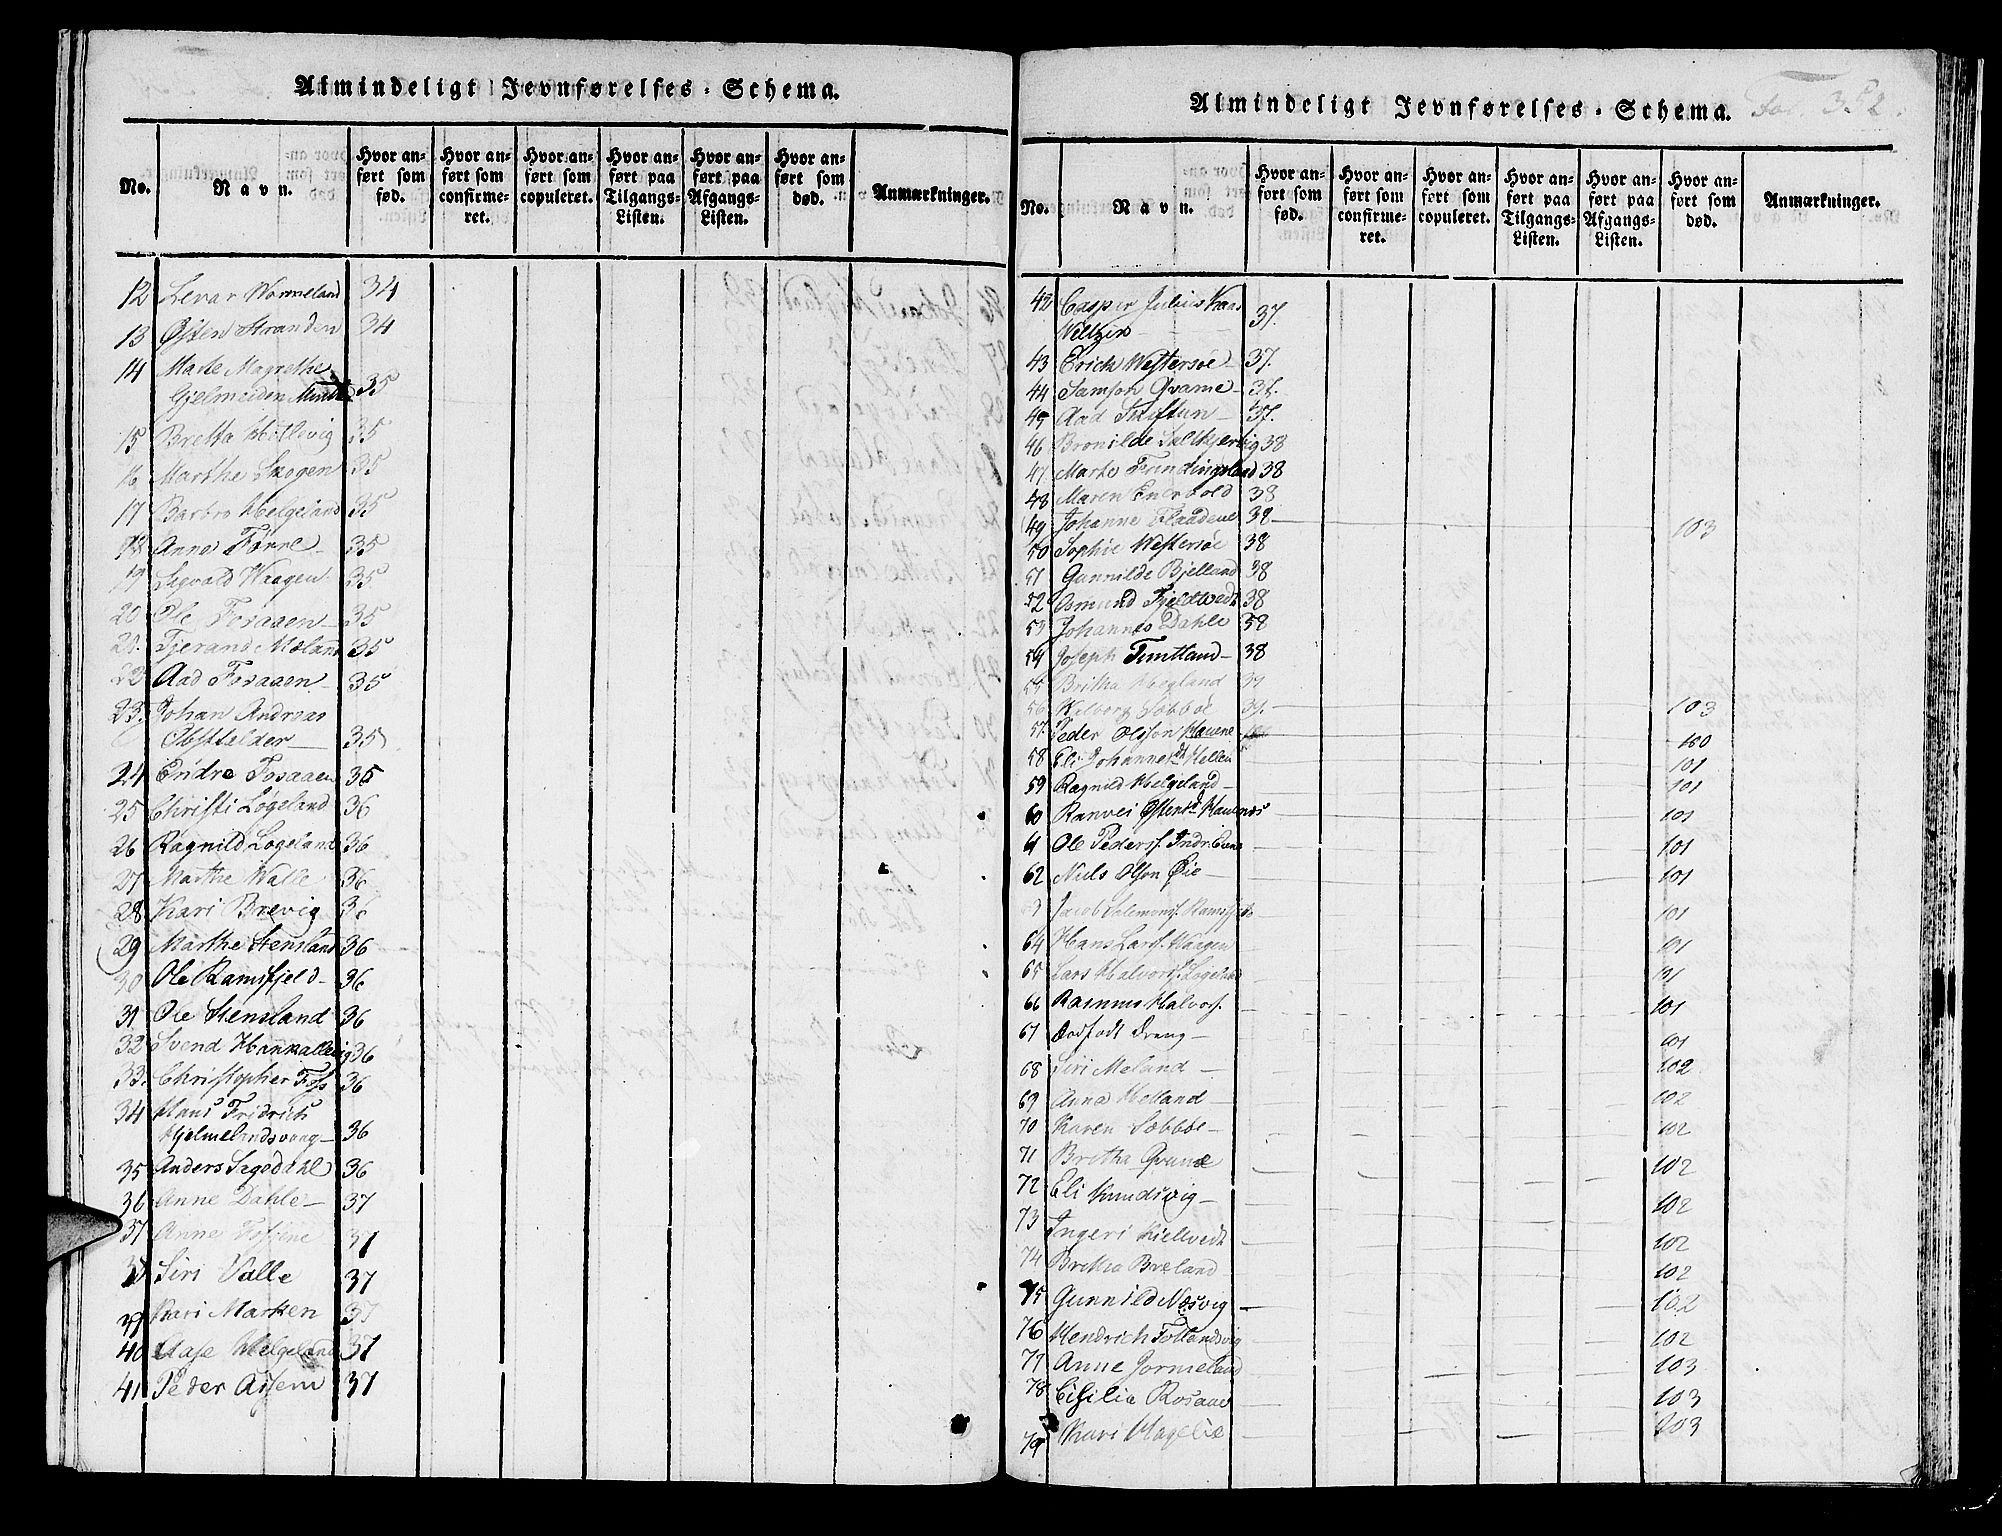 Almindeligt Jevnførelses-Schema.
No. Navn. Hvor anført som fød. Hvor anført som confirmeret. Hvor anført som copuleret. Hvor anført paa Tilgangs-Listen. Hvor anført paa Afgangs-Listen. Hvor anført som død. Anmærkninger.
12 Levar Wormeland 34
13 Østen Stranden 34
14 Marte Magrethe
Hjelmeiden Minde 35
15 Bretta Hetlevig 35
16 Marthe Skogen 35
17 Barbro Helgeland 35
18 Anna Førre 35
19 Sigvald Waagen 35
20 Ole Fosaaen 35
21. Tjerand Mæland 35
22 Aad Fosaaen 35
23. Johan Andreas
Obstfelder 35
24 Endre Fosaaen 35
25 Christi Løgeland 36
26 Ragnild Løgeland 36
27 Marthe Walle 36
28 Kari Brevig 36
29 Marthe Stensland 36
30 Ole Ramsfjeld 36
31 Ole Stensland 36
32 Svend Hankallevig 36
33. Christopher Foss 36
34 Hans Fridrich
Hjelmelandsvaag 36
35 Anders Sagedahl 36
36 Anne Dahle 37
37 Anne 37
38 Siri Valle 37
39 Kari Marken 37
40 Aase Helgeland 37
41 Peder 37
Almindeligt Jevnførelses-Schema. Fol. 352.
No. Navn. Hvor anført som fød. Hvor anført som confirmeret. Hvor anført som copuleret. Hvor anført paa Tilgangs-Listen. Hvor anført paa Afgangs-Listen. Hvor anført som død. Anmærkninger.
42 Casper Julius
Weltzin 37.
43 Erich Westersøe 37.
44 Samson Qvame 37.
45 Aad Tuftun 37.
46 Bronilde 38
47 Marte 38
48 Maren Enervold 38
49 Johanne Flaadene 38 103
50 Sophie Westersøe 38
51 Gunnilde Bjelland 38
52 Osmund Fjeldtvedt 38
53 Johannes Dahle 38
54 Joseph Tuntland 38
55 Britha Hegland 39
56 Welborg Sæbbøe 39. 103
57. Peder Olsson Hauene 100
58 Eli Johannesdt Hellen 101
59 Ragnild Helgeland 101
60 Ranvei Østensd 101
61 Ole Peders. Indr. 101
62 Niels Olson Øie 101
Jacob Salomons. 101
64 Hans Lars. Waagen 101
65 Lars Halvors. 101
66 Rasmus Halvors. 101
67 Dødfødt Dreng 101
68 Siri Meland 102
69 Anna Helland 102
70 Karen Sæbbøe 102
71 Britha Qvame 102
72 Eli Knudsvig 102
73 Ingeri Kielvedt 102
74 Britha Breland 102
75 Gunnild Næsvig 102
76 Hendrich Tøtlandsvig 102
77 Anne Jørmeland 103
78 Cisilia Rosaae 103
79 Kari Hagelie 103